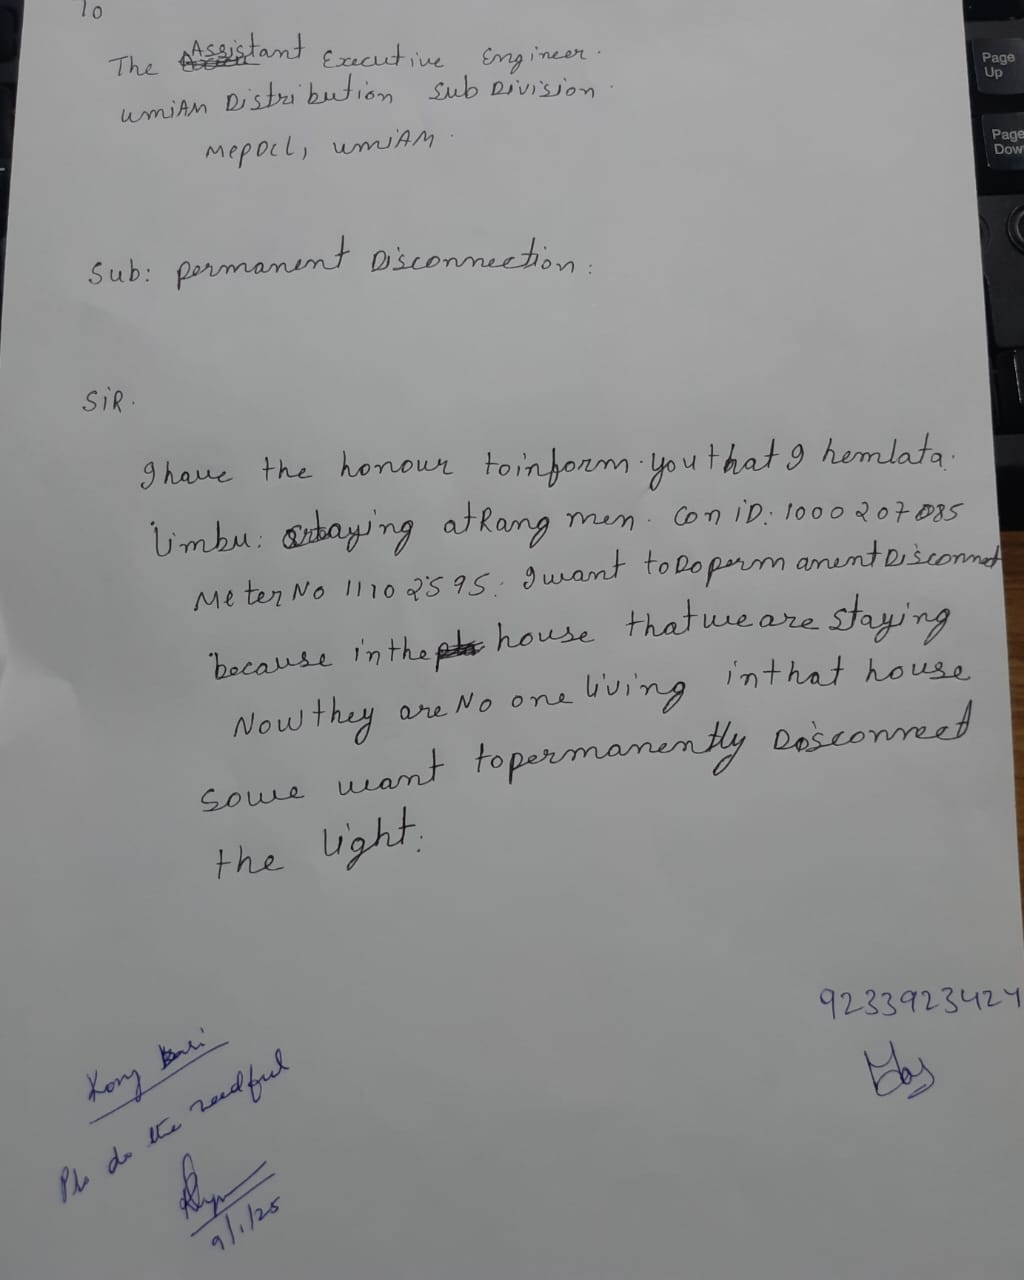 To
The Assistant Executive Engineer.
umiAM Distribution Sub Division.
MepDCl, umiAM.
Sub: permanent Disconnection:
SiR.
I have the honour to inform you that I hemlata.
limbu. staying at Rang men. Con iD: 1000207085
Meter No 11102595. I want to Do permanent Disconnet
because in the house that we are staying
Now they are No one living in that house
So we want to permanently Disconnect
the light.
9233923424
Kong
Pls do the needful
9/1/25
Page
Up
Page
Dow